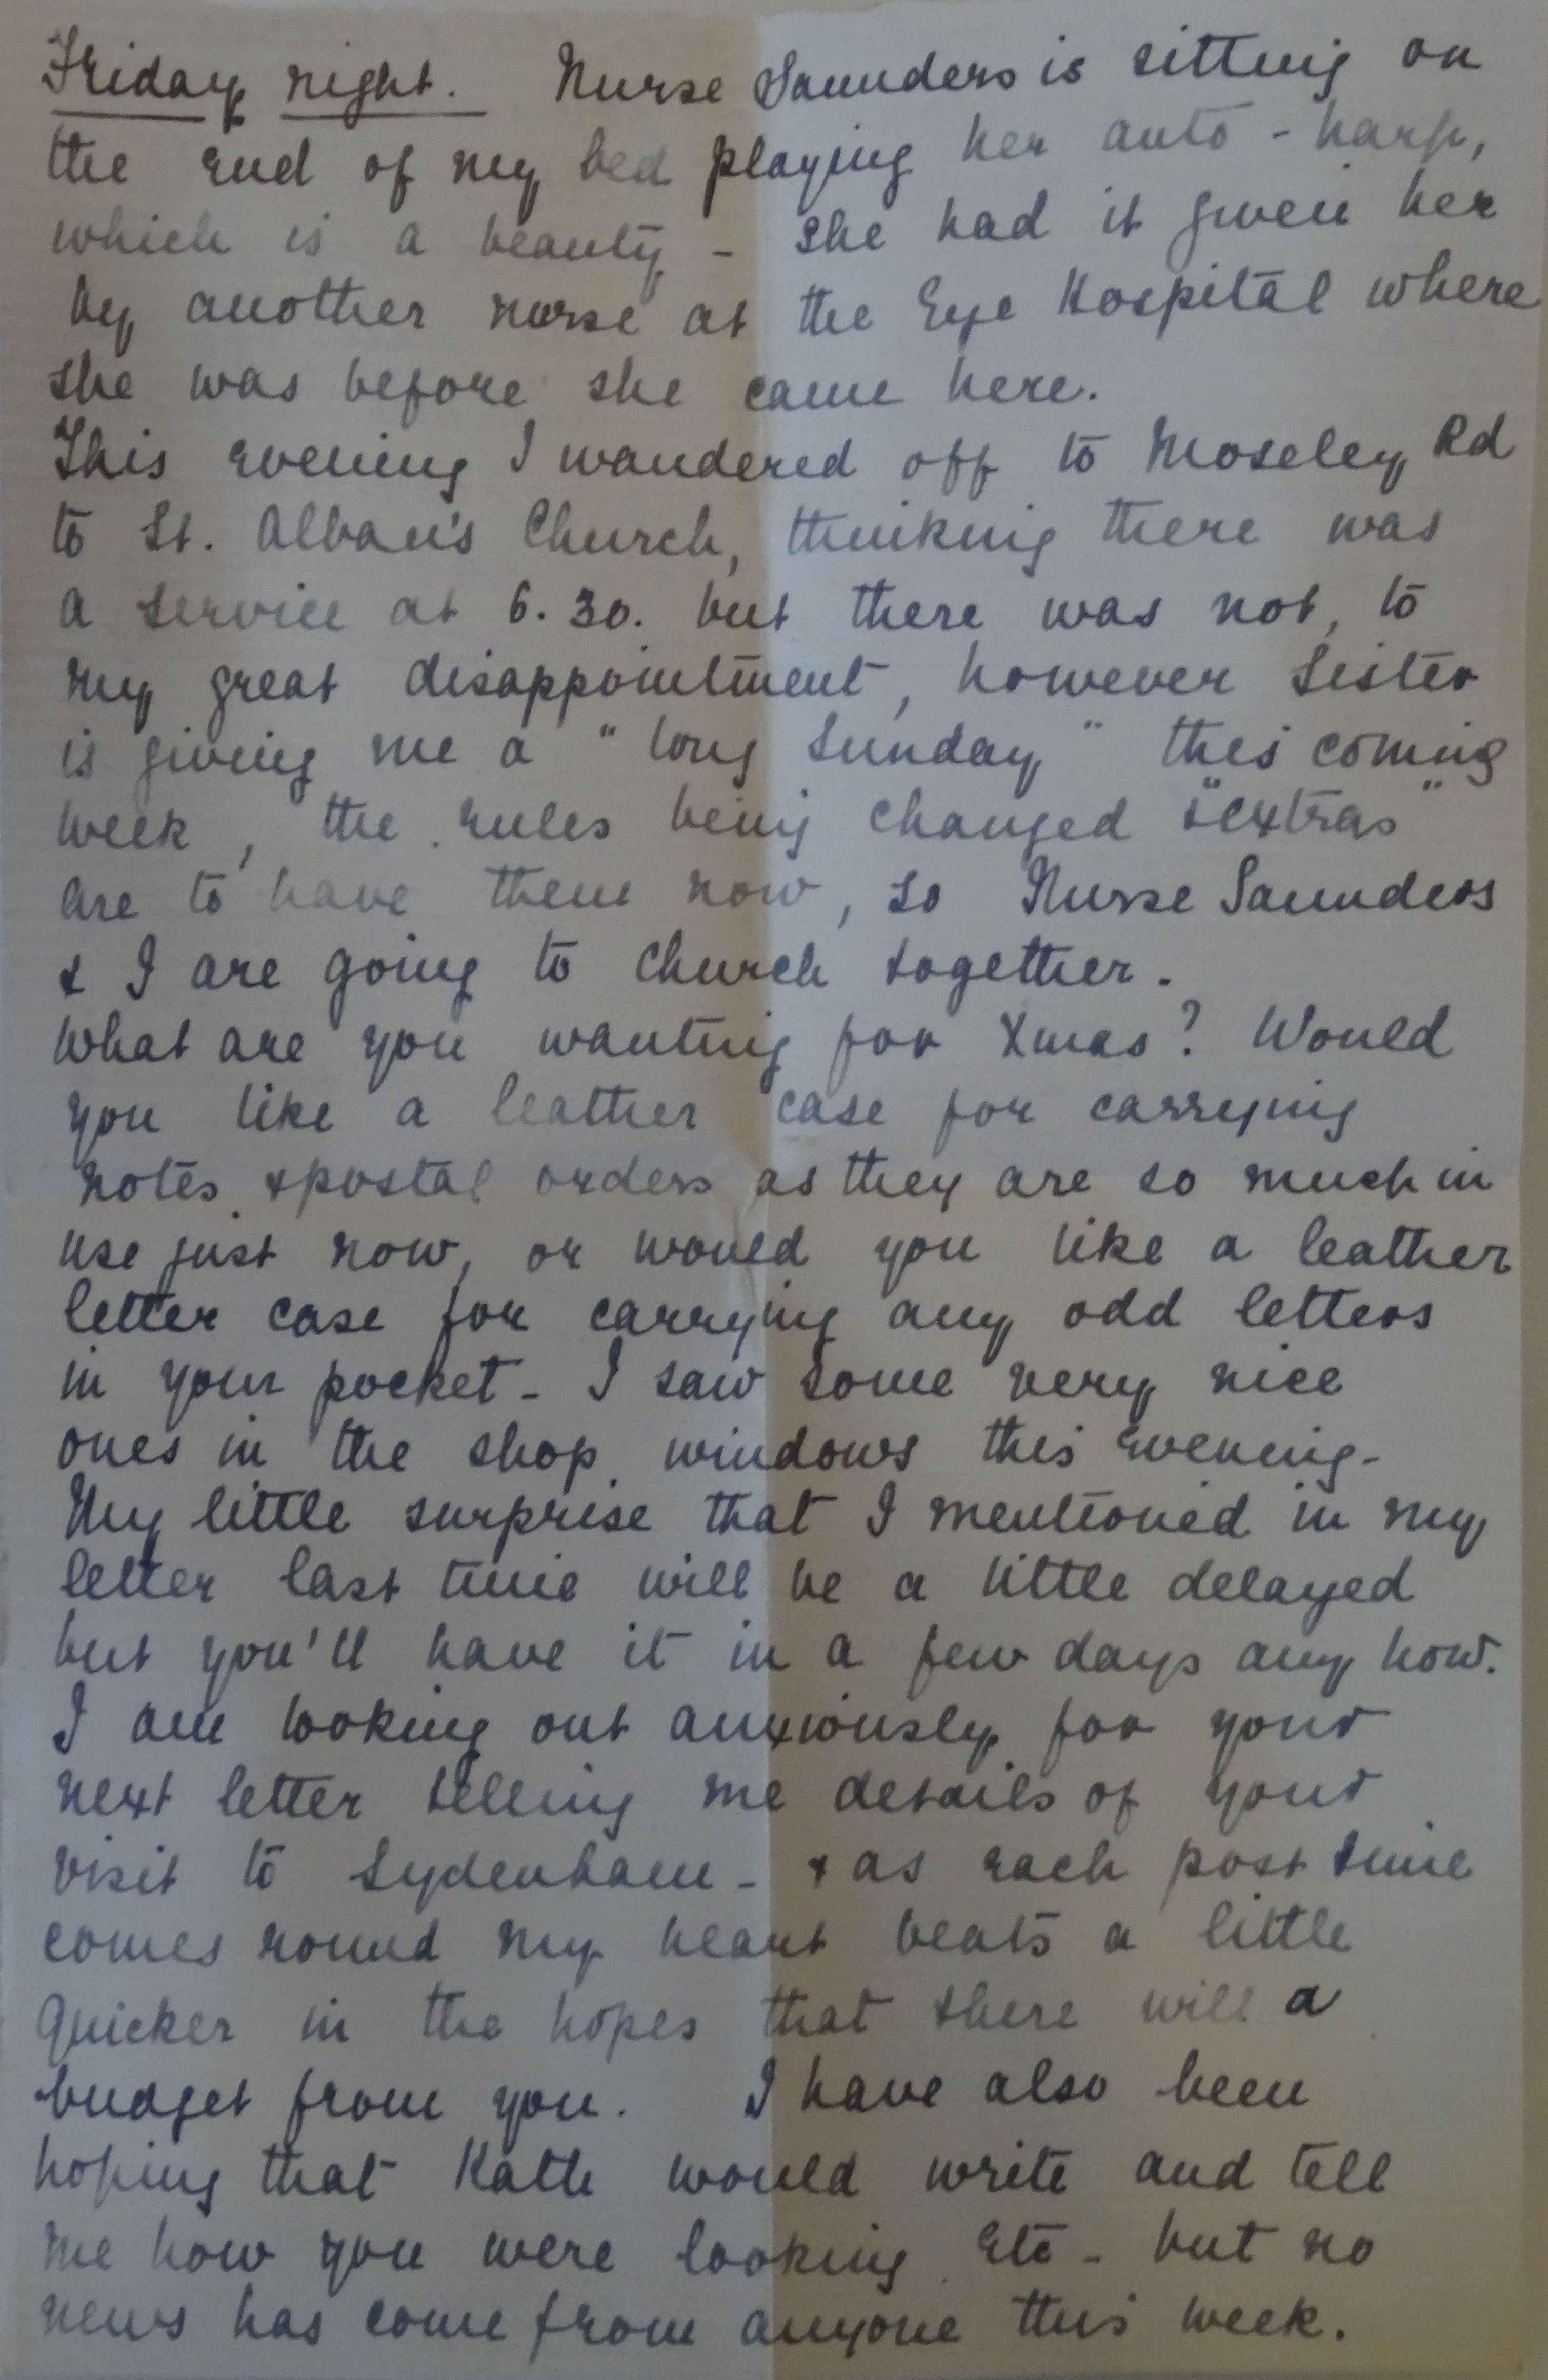 Friday night. Nurse Saunders is sitting on
the end of my bed playing her auto-harp,
which is a beauty - she had it given her
by another nurse at the Eye Hospital where
she was before she came here.
This evening I wandered off to Moseley Rd
to St. Alban's Church, thinking there was
a service at 6.30. but there was not, to
my great disappointment, however Sister
is giving me a "long Sunday" this coming
week, the rules being changed "extras"
are to have them now, so Nurse Saunders
& I are going to church together.
What are you wanting for Xmas? Would
you like a leather case for carrying
notes & postal orders as they are so much in
use just now, or would you like a leather
letter case for carrying any odd letters
in your pocket - I saw some very nice
ones in the shop windows this evening -
My little surprise that I mentioned in my
letter last time will be a little delayed
but you'll have it in a few days any how.
I am looking out anxiously for your
next letter telling me details of your
visit to Sydenham - & as each post time
comes round my heart beats a little
quicker in the hopes that there will a
budget from you. I have also been
hoping that Kath would write and tell
me how you were looking etc - but no
news has come from anyone this week.